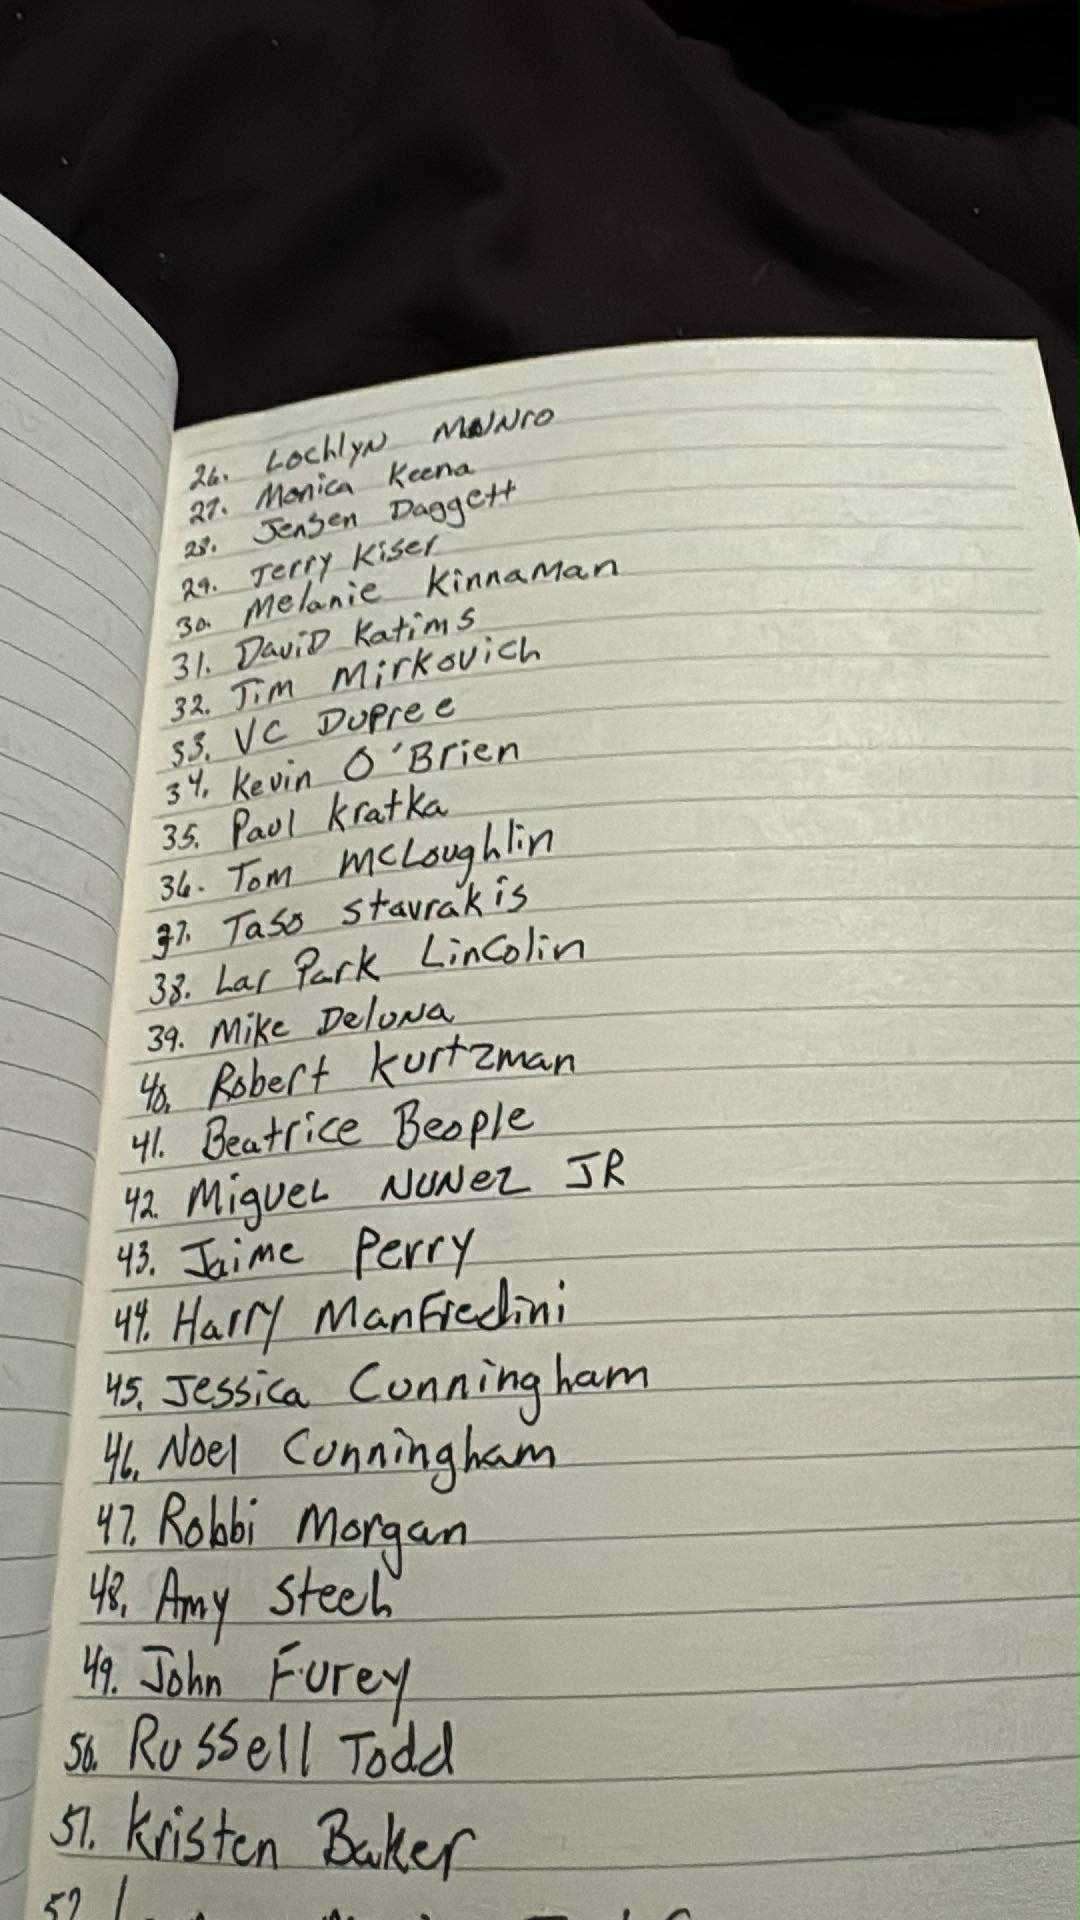 26. Lochlyn Munro
27. Monica Keena
28. Jensen Daggett
29. Jerry Kiser
30. Melanie Kinnaman
31. David Katims
32. Jim Mirkovich
33. VC Dupree
34. Kevin O'Brien
35. Paul Kratka
36. Tom McLoughlin
37. Taso Stavrakis
38. Lar Park LinColin
39. Mike Deluna
40. Robert Kurtzman
41. Beatrice Beople
42. Miguel Nunez JR
43. Jaime Perry
44. Harry Manfredini
45. Jessica Cunningham
46. Noel Cunningham
47. Robbi Morgan
48. Amy Steel
49. John Furey
50. Russell Todd
51. Kristen Baker
52.